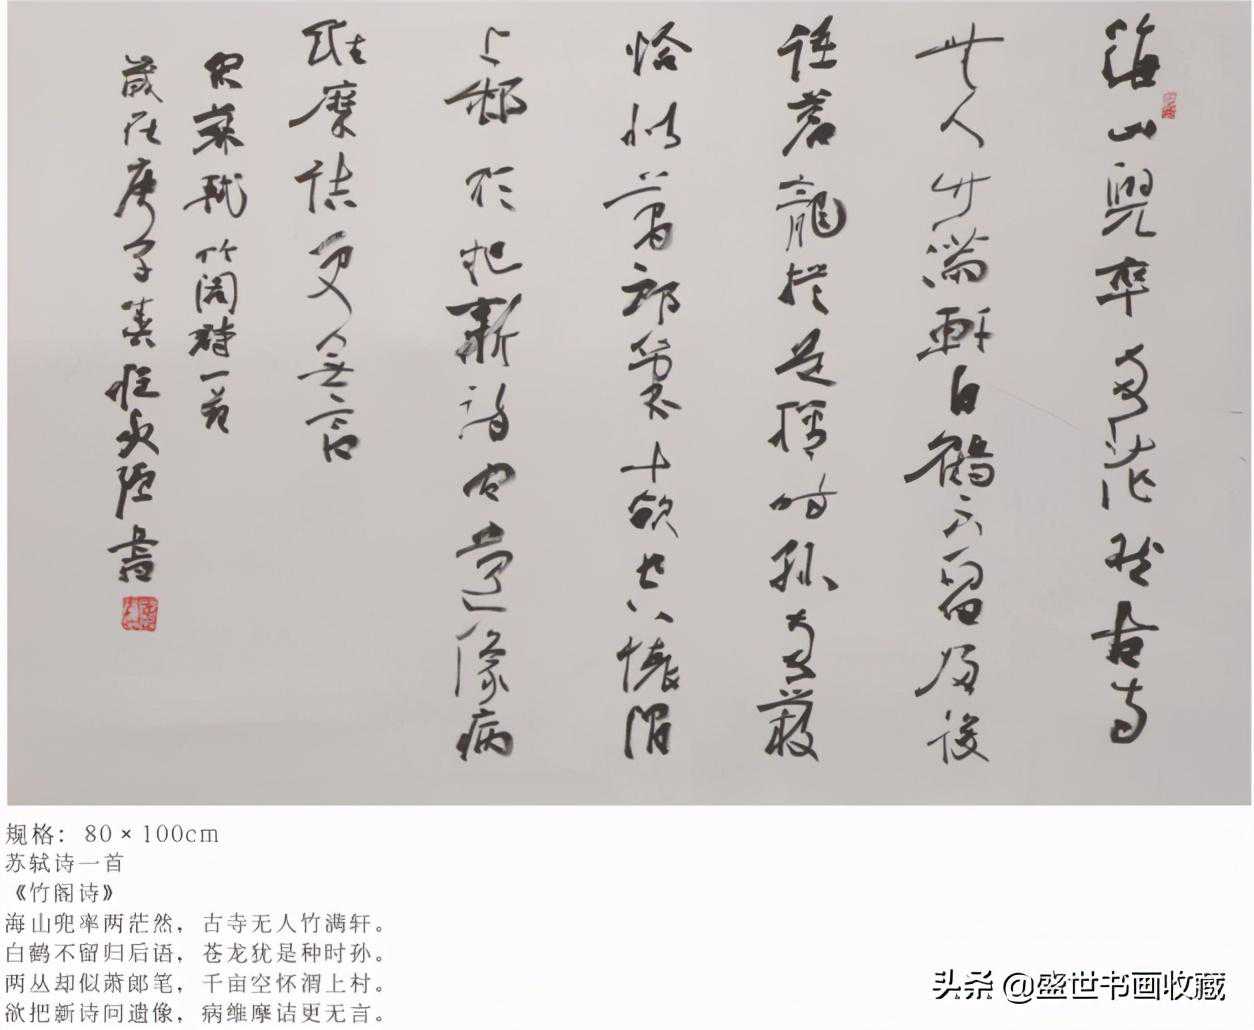 海山兜率两茫然古寺
無人竹满軒白鶴不留归後
语蒼龍犹是種时孙两叢
恰似萧郎筆千畝空懷渭
上邨欲把新詩问遺像病
維摩詰更無言
蘇軾竹阁詩一首
歲在庚子春
書
规格：80×100cm
苏轼诗一首
《竹阁诗》
海山兜率两茫然，古寺无人竹满轩。
白鹤不留归后语，苍龙犹是种时孙。
两丛却似萧郎笔，千亩空怀渭上村。
欲把新诗问遗像，病维摩诘更无言。
头条 @盛世书画收藏